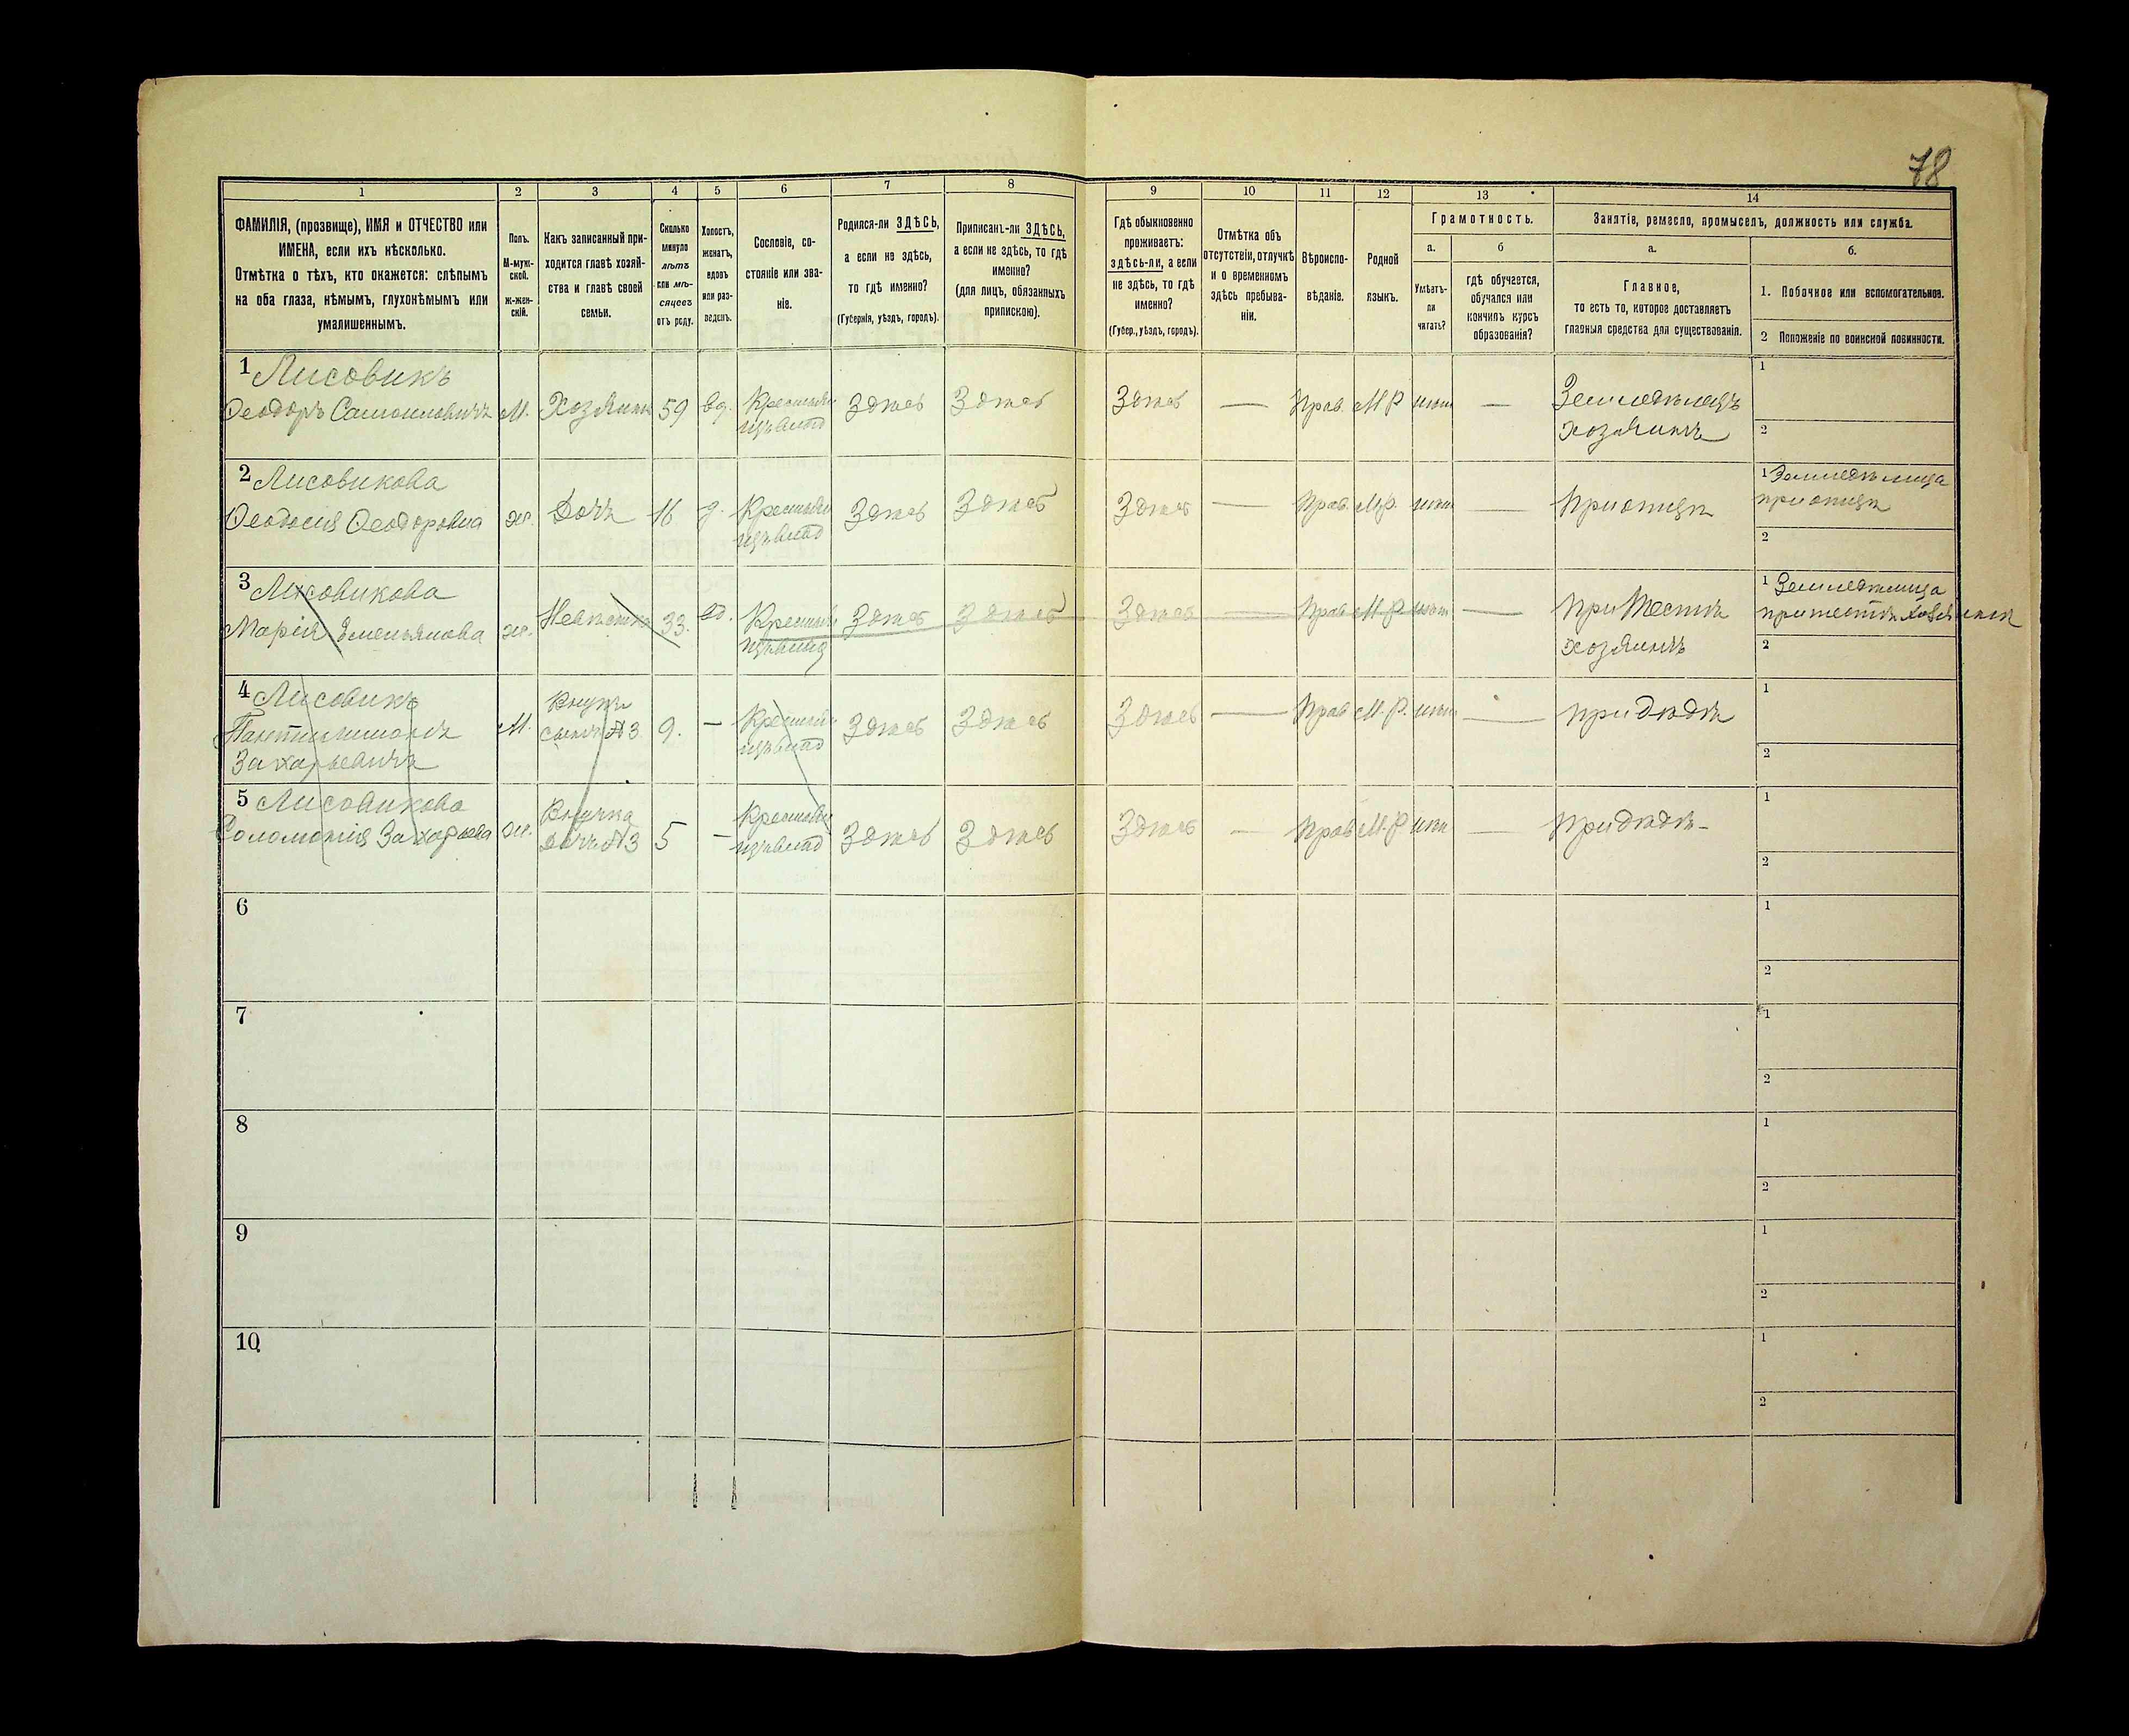 78
1 2 3 4 5 6 7 8 9 10 11 12 13 14
ФАМИЛІЯ, (прозвище), ИМЯ и ОТЧЕСТВО или
ИМЕНА, если ихъ нѣсколько.
Отмѣтка о тѣхъ, кто окажется: слѣпымъ
на оба глаза, нѣмымъ, глухонѣмымъ или
умалишеннымъ.
Полъ.
М-муж-
ской.
Ж-жен-
скій.
Какъ записанный при-
ходится главѣ хозяй-
ства и главѣ своей
семьи.
Сколько
минуло
лѣтъ
или мѣ-
сяцевъ
отъ роду.
Холостъ,
женатъ,
вдовъ
или раз-
веденъ.
Сословіе, со-
стояніе или зва-
ніе.
Родился-ли ЗДѢСЬ,
а если не здѣсь,
то гдѣ именно?
(Губернія, уѣздъ, городъ).
Приписанъ-ли ЗДѢСЬ,
а если не здѣсь, то гдѣ
именно?
(для лицъ, обязанныхъ
припискою).
Гдѣ обыкновенно
проживаетъ:
здѣсь-ли, а если
не здѣсь, то гдѣ
именно?
(Губер., уѣздъ, городъ).
Отмѣтка объ
отсутствіи, отлучкѣ
и о временномъ
здѣсь пребыва-
ніи.
Вѣроиспо-
вѣданіе.
Родной
языкъ.
Грамотность.
а.
Умѣетъ-
ли
читать?
б
гдѣ обучается,
обучался или
кончилъ курсъ
образованія?
Занятіе, ремесло, промыселъ, должность или служба.
а.
Главное,
то есть то, которое доставляетъ
главныя средства для существованія.
б.
1. Побочное или вспомогательное.
2 Положеніе по воинской повинности.
1 Лисовикъ
Ѳеодоръ Самоиловичъ М. Хозяинъ 59 вд. Крестьян Здѣсь Здѣсь Здѣсь — Прав. М Р нѣт — Земледѣлецъ
хозяинъ
1
2
2 Лисовикова
Ѳеодосія Ѳеодоровна ж. Дочь 16 д. Крестьян Здѣсь Здѣсь Здѣсь — Прав. М.Р. нѣт — При отцѣ
1 Земледѣлица
при отцѣ
2
3 Лисовикова
Марія Емельянова ж. Невѣстка 33. вд. Крестьян Здѣсь Здѣсь Здѣсь — Прав М.Р нѣт — При тестѣ
хозяинъ
1 Земледѣлица
при тестѣ хозяинѣ
2
4 Лисовикъ
Пантилимонъ
Захарьевичъ М. Внукъ
сынъ №3 9. — Крестьян Здѣсь Здѣсь Здѣсь — Прав М.Р. нѣт — при дѣдѣ
1
2
5 Лисовикова
Соломонія Захарьева ж. Внучка
дочь №3 5 — Крестьян Здѣсь Здѣсь Здѣсь — Прав М.Р нѣт — при дѣдѣ-
1
2
6
1
2
7
1
2
8
1
2
9
1
2
10
1
2